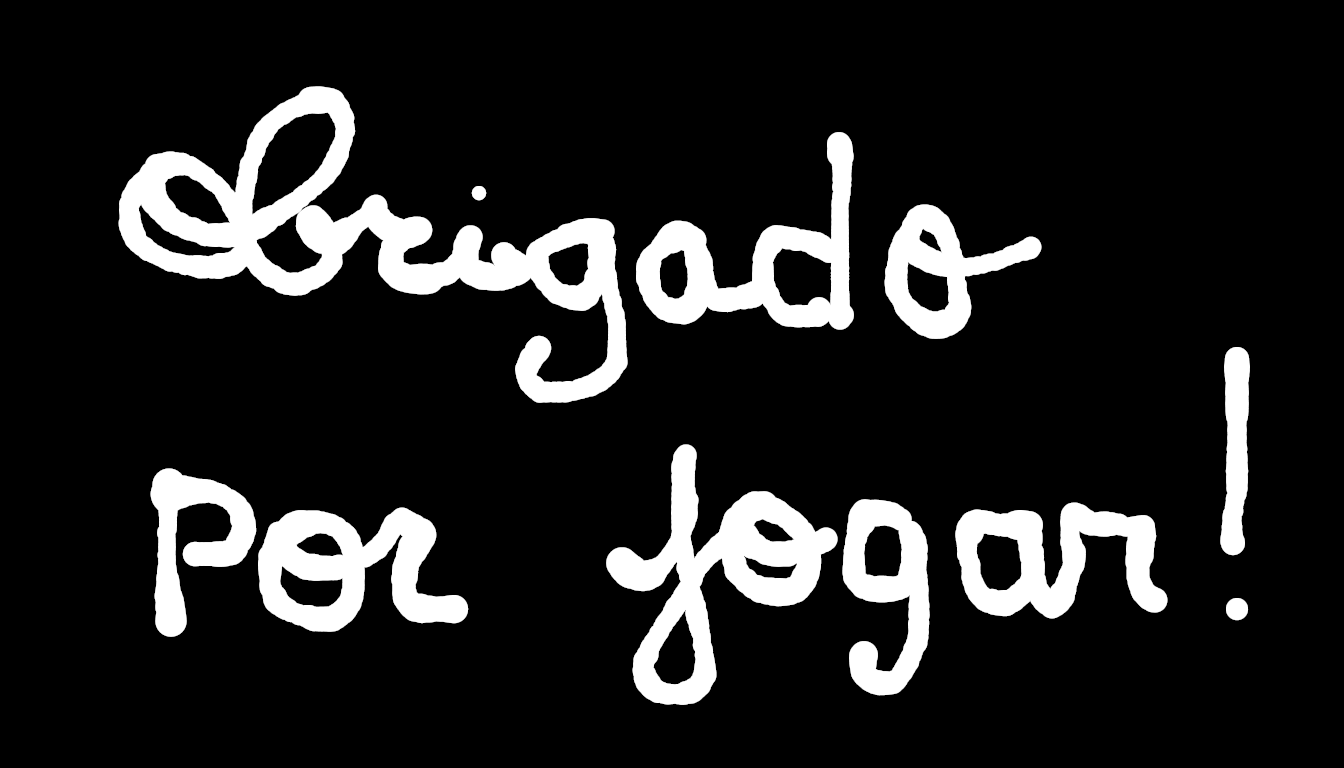 Obrigado
por jogar!